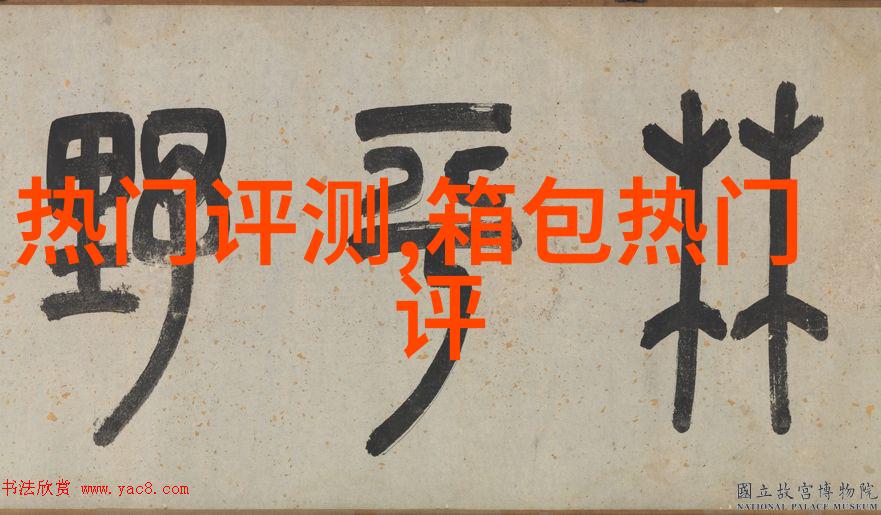 林平野
热门评测,箱包热门
评
书法欣赏 www.yac8.com
國立故宮博物院
NATIONAL PALACE MUSEUM